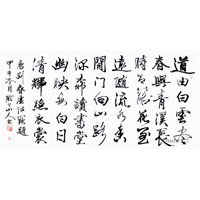 道由白雲盡
春與青溪長
時有落花至
遠隨流水香
閑門向山路
深柳讀書堂
幽映每白日
清輝照衣裳
唐劉眘虛闕題
甲午冬月山人書